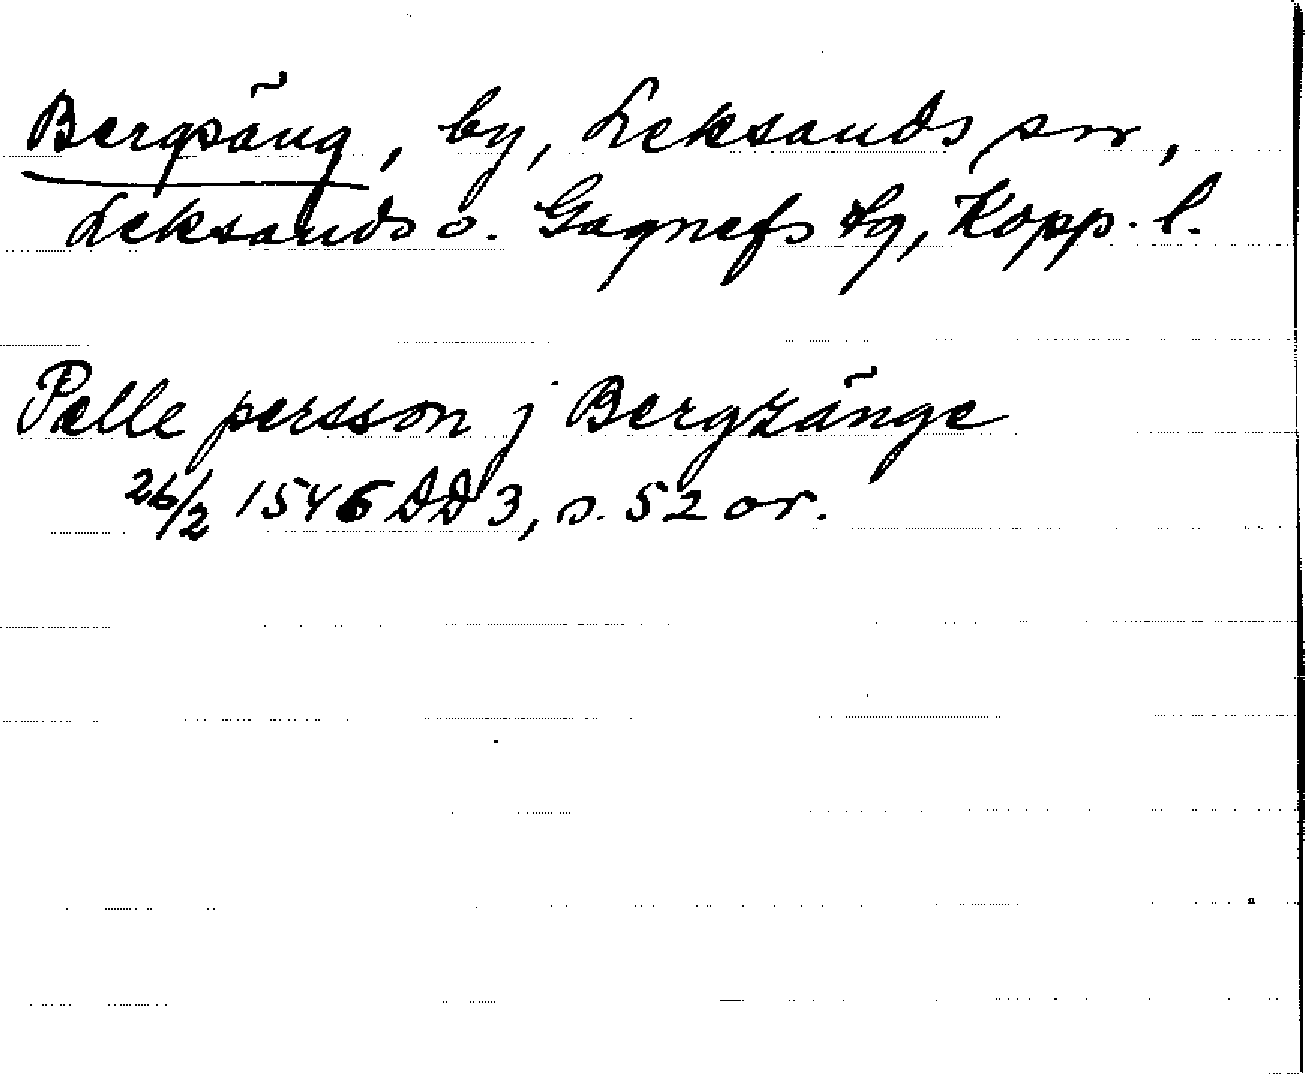 Bergsäng, by, Leksands sn,
Leksands o. Gagnefs tg, Kopp. l.
Pelle persson j Bergzänge
26/2 1546 DD 3, s. 52 or.